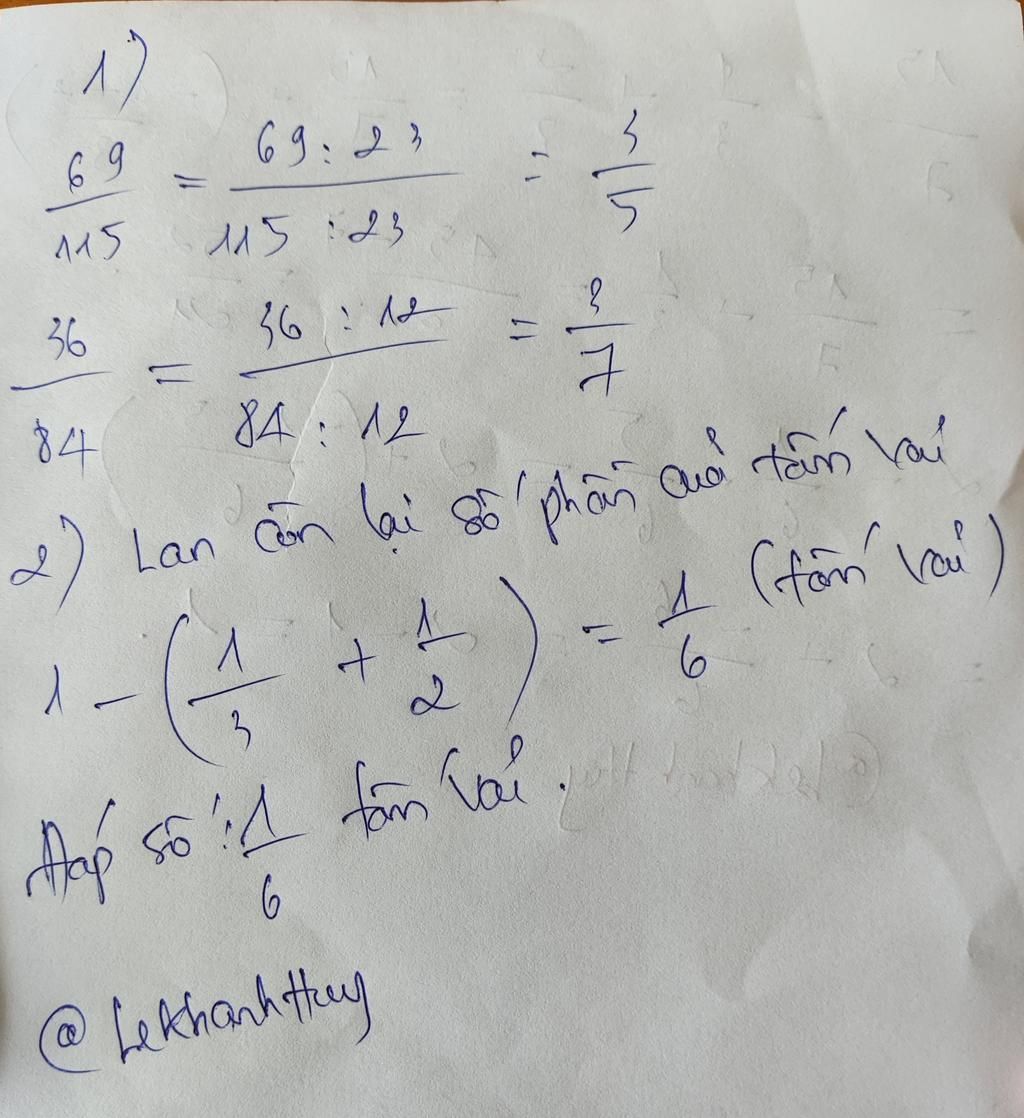 1)
69/115 = 69 : 23 / 115 : 23 = 3/5
36/84 = 36 : 12 / 84 : 12 = 3/7
2) Lan còn lại số phần của tấm vải
1 - (1/3 + 1/2) = 1/6 (tấm vải)
Đáp số : 1/6 tấm vải .
@LeKhanhHuy